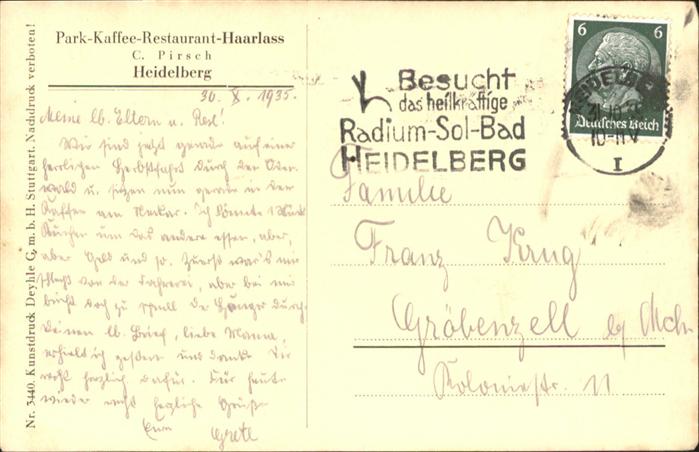 Park-Kaffee-Restaurant-Haarlass
C. Pirsch
Heidelberg
30. X. 1935.
Meine lb. Eltern u. Rest!
Wir sind jetzt gerade auf einer
herrlichen Herbstfahrt durch den Oden-
wald u. sitzen nun gerade in den
Kaffee am Neckar. Ich könnte 1 Stück
Kuchen um das andere essen, aber,
aber Geld und so. Zuerst war's mir
schlecht von der Fahrerei, aber bei mir
bricht doch zu schnell der Hunger durch.
Deinen lb. Brief, liebe Mama,
erhielt ich gestern und danke Dir
recht herzlich dafür. Für heute
wieder recht herzliche Grüße
Eure
Gretl
Nr. 3440. Kunstdruck Deyhle G. m. b. H. Stuttgart. Nachdruck verboten!
Besucht
das heilkräftige
Radium-Sol-Bad
HEIDELBERG
6 6
Deutsches Reich
HEIDELBERG
10-11 V
I
Familie
Franz Krug
Gröbenzell b/ Mchn
Koloniestr. 11